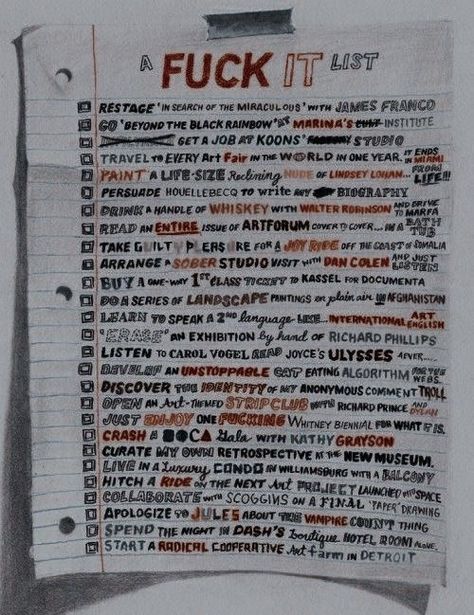 A FUCK IT LIST
RESTAGE 'IN SEARCH OF THE MIRACULOUS' WITH JAMES FRANCO
GO 'BEYOND THE BLACK RAINBOW' AT MARINA'S CULT INSTITUTE
GET A JOB AT KOONS' FACTORY STUDIO
TRAVEL TO EVERY Art Fair IN THE WORLD IN ONE YEAR. IT ENDS IN MIAMI
PAINT A LIFE-SIZE Reclining NUDE OF LINDSEY LOHAN... FROM LIFE!!!
PERSUADE HOUELLEBECQ TO write my BIOGRAPHY
DRINK A HANDLE OF WHISKEY WITH WALTER ROBINSON AND DRIVE TO MARFA
READ AN ENTIRE ISSUE OF ARTFORUM COVER TO COVER... IN A BATH TUB
TAKE GUILTY PLEASURE FOR A JOY RIDE OFF THE COAST OF SOMALIA
ARRANGE A SOBER STUDIO VISIT WITH DAN COLEN AND JUST LISTEN
BUY A ONE-WAY 1ST CLASS TICKET TO KASSEL FOR DOCUMENTA
DO A SERIES OF LANDSCAPE PAINTINGS en plain air IN AFGHANISTAN
LEARN TO SPEAK A 2ND language LIKE... INTERNATIONAL ART ENGLISH
'ERASE' AN EXHIBITION by hand OF RICHARD PHILLIPS
LISTEN TO CAROL VOGEL READ JOYCE'S ULYSSES 4EVER....
DEVELOP AN UNSTOPPABLE CAT EATING ALGORITHM FOR THE WEBS.
DISCOVER THE IDENTITY OF MY ANONYMOUS COMMENT TROLL
OPEN AN Art-THEMED STRIP CLUB WITH RICHARD PRINCE AND DYLAN
JUST ENJOY ONE FUCKING WHITNEY BIENNIAL FOR WHAT IT IS.
CRASH A Gala WITH KATHY GRAYSON
CURATE MY OWN RETROSPECTIVE AT THE NEW MUSEUM.
LIVE IN A Luxury CONDO IN WILLIAMSBURG WITH A BALCONY
HITCH A RIDE ON THE NEXT Art PROJECT LAUNCHED INTO SPACE
COLLABORATE WITH SCOGGINS ON A FINAL 'PAPER' DRAWING
APOLOGIZE TO JULES ABOUT THE VAMPIRE COUNT THING
SPEND THE NIGHT IN DASH'S boutique HOTEL ROOM ALONE.
START A RADICAL COOPERATIVE Art farm IN DETROIT